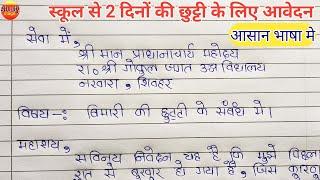 स्कूल से 2 दिनों की छुट्टी के लिए आवेदन
आसान भाषा मे
सेवा में,
श्री मान प्राधानाचार्य महोदय
रा० श्री गोकुल जगत उच्च विद्यालय
नरवारा, शिवहर
विषय-: बिमारी की छुट्टी के संबंध में।
महाशय,
सविनय निवेदन यह है कि मुझे पिछला
रात से बुखार हो गया है, जिस कारण